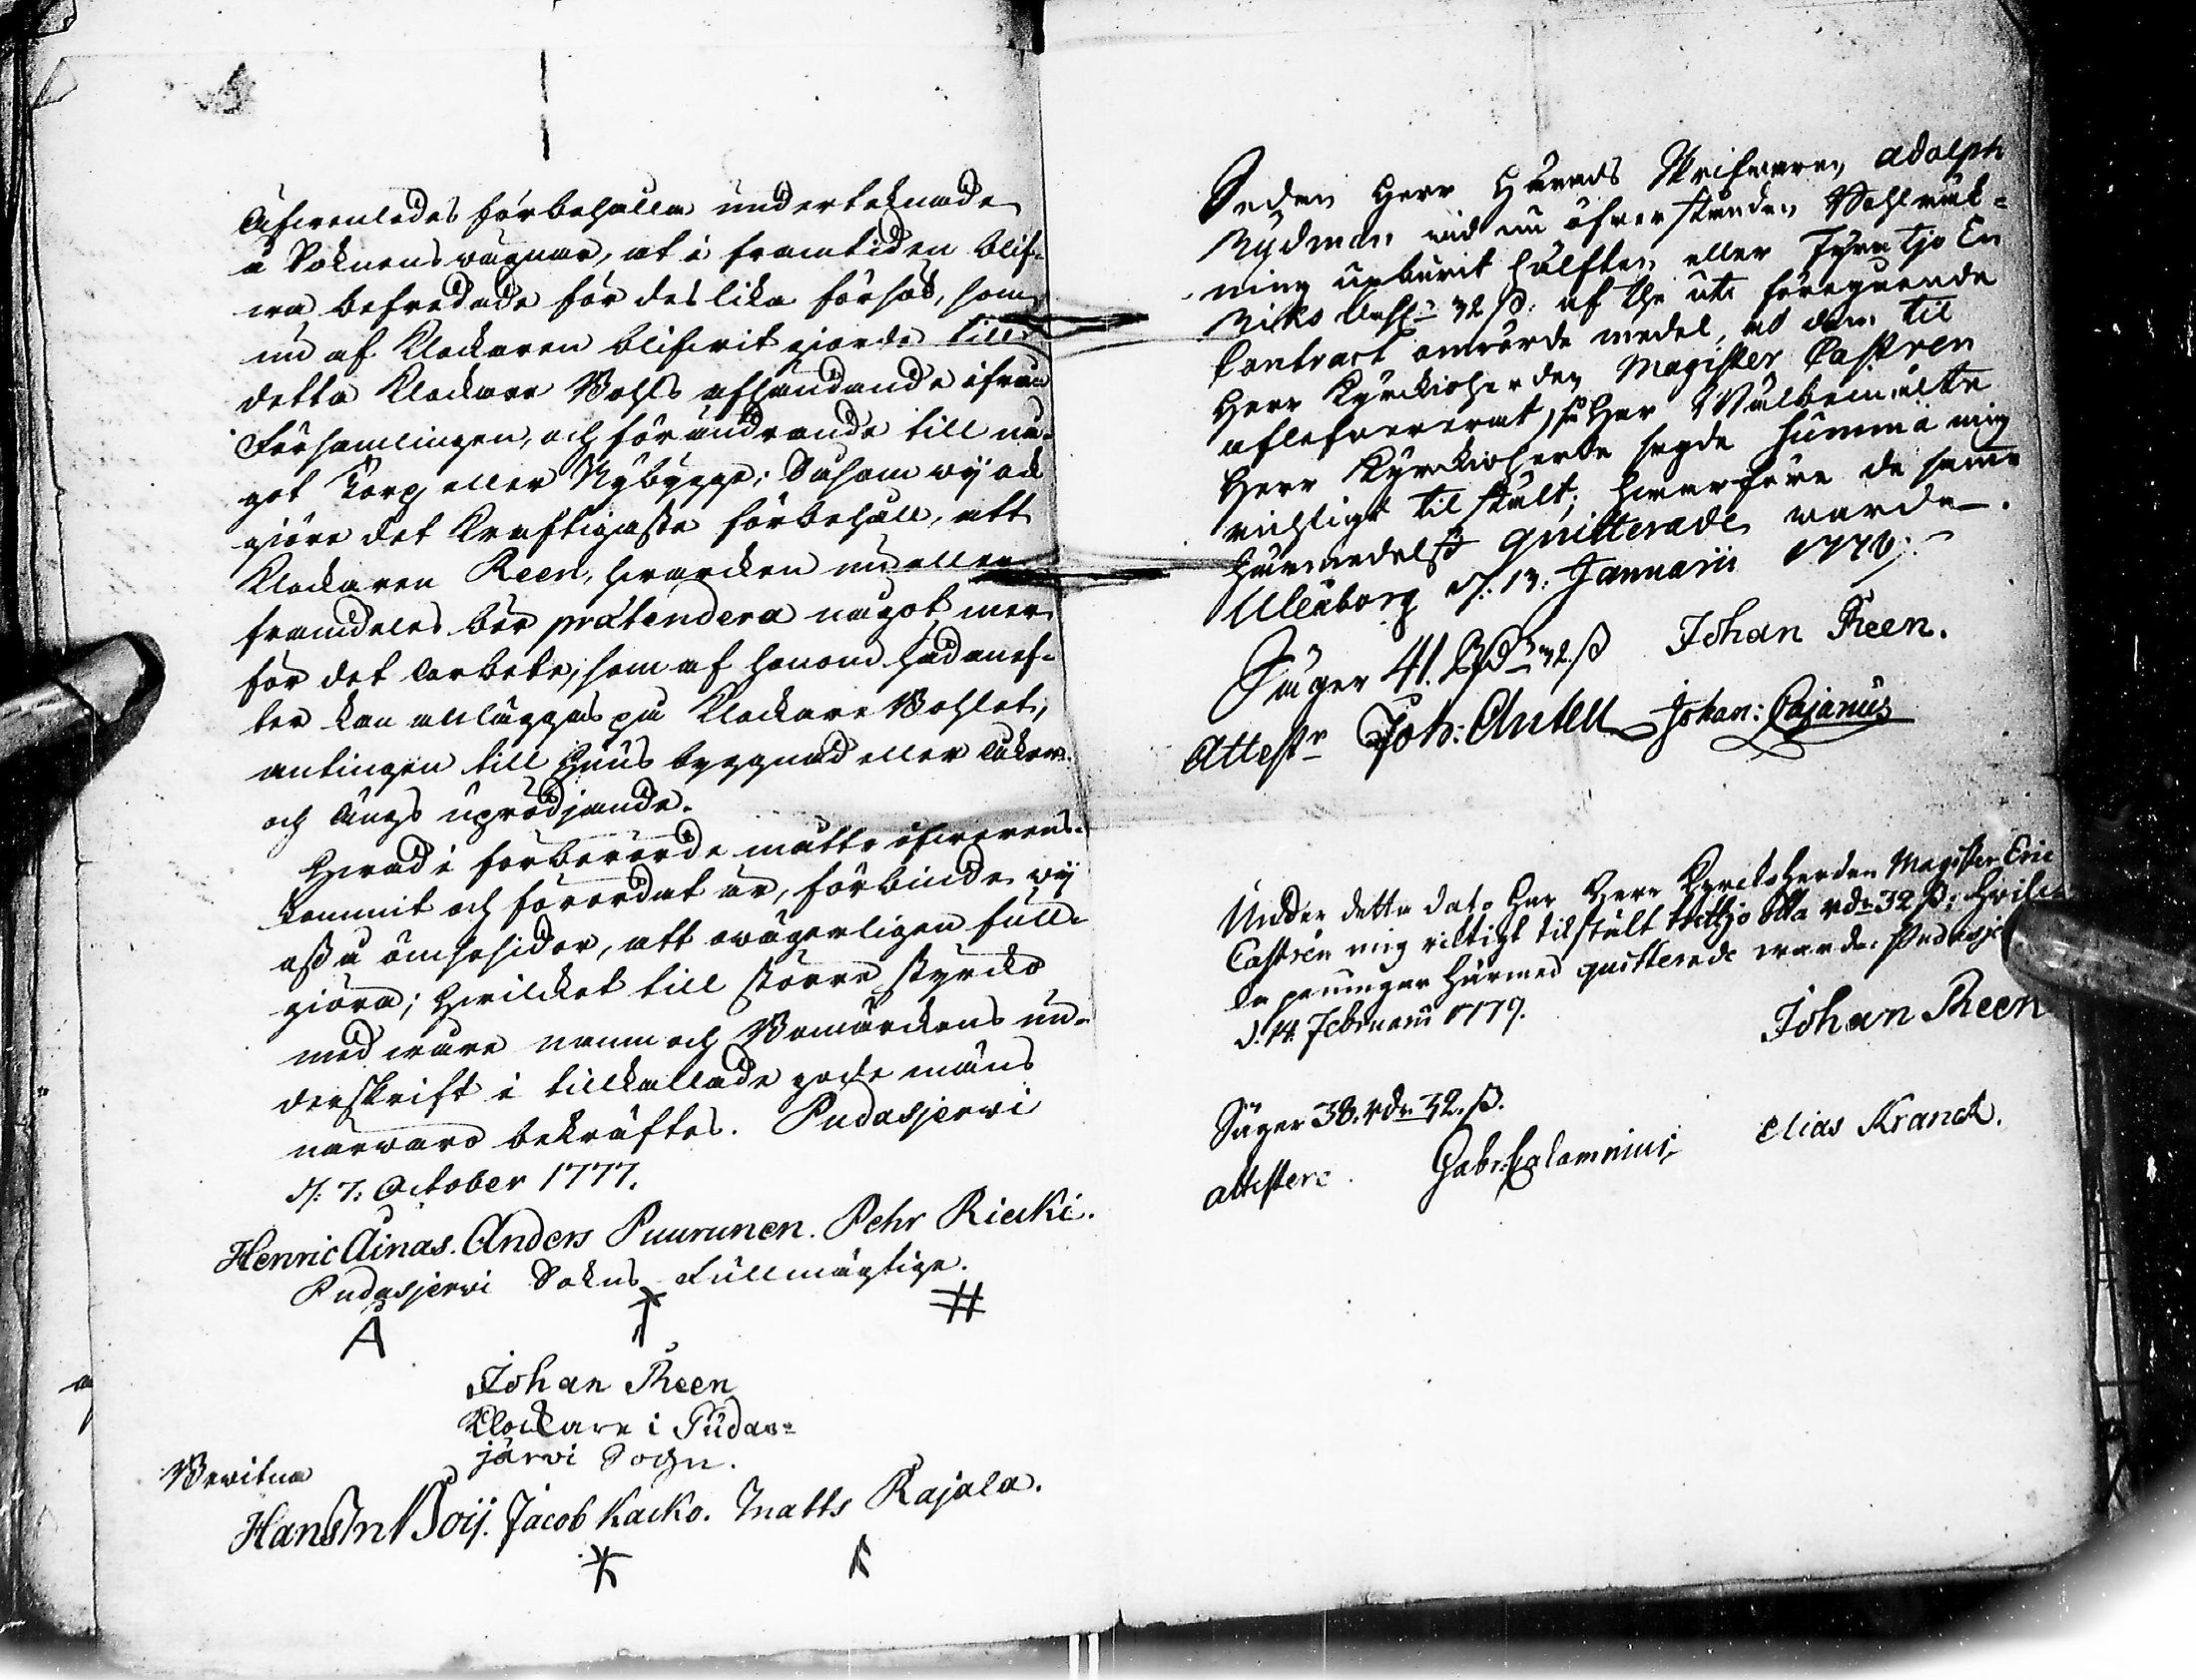 Äfwenledes förbehålla undertecknade
å Soknens wägnar, at i framtiden blif-
wa befredade för deslika försök, som
nu af Klockaren blifwit giorde till
detta Klockare Bohls afhändande ifrån
Församlingen, och förändrande till nå-
got Torp eller Nybygge: Såsom wij ock
giöre det kraftigaste förbehåll, att
Klockaren Reen, hwarcken nu eller
framdeles bör prætendera något mer
för det arbete, som af honom hädanef-
ter kan anläggas på Klockare Bohlet,
antingen till Huus byggnad eller åker
och ängs uprödjande.
Hwad i förberörde måtto öfwerens-
kommit och förordat är, förbinde wij
oss å ömse sidor, att owägerligen full-
giöra; hwilcket till större styrcko
med wåre namn och Bomärckens un-
derskrift i tillkallade gode mäns
närwaro bekräftes. Pudasjerwi
d. 7. October 1777.
Henric Ainas. Anders Puurunen. Pehr Riecki.
Pudasjerwi Sokns Fullmägtige.
Johan Reen
Klockare i Pudas-
järwi Sogn.
Bewitna
Hans Boij. Jacob Kacko. Matts Rajala.
Sedan Herr Härads Skrifwaren Adolph
Nydman wid nu öfwerstånden
ning upburit hälften eller Fyratijo En
Riks 32 s. af the uti föregående
Contract omrörde medel, at dem til
Herr Kyrckioherden Magister Castren
aflefwererat, så har Wälbemälte
Herr Kyrckioherde sagde Summa mig
richtigt tilstält; hwarföre de samme
härmedelst quitterade warda.
Uleåborg d. 13. Januarii 1778.
Johan Reen.
Säger 41. Rd. 32. s
Attest. Joh: Antell Johan: Cajanus
Under detta dato har Herr Kyrckoherden Magister Eric
Castrén mig riktigt tilstält trettijo otta rdr 32 s; hwilc-
ka peningar härmed quitterade warda. Pudasj
d. 14. Februarii 1779.
Johan Reen
Säger 38. rdr. 32. s.
attestera. Gabr. Calamnius, Elias Kranck.